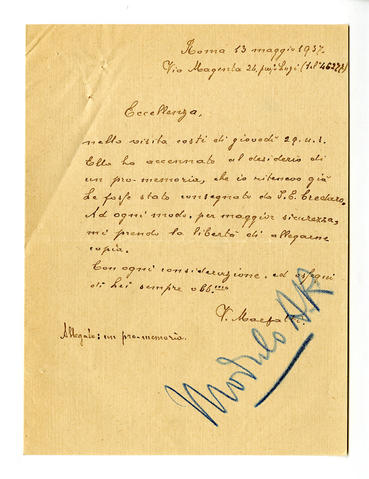 Roma 13 maggio 1937.
Via Magenta 24, 
Eccellenza,
nella visita costì di giovedì 29. u. s.
Ella ha accennato al desiderio di
un pro-memoria, che io ritenevo già
Le fosse stato consegnato da S. E. Credaro.
Ad ogni modo, per maggior sicurezza,
mi prendo la libertà di allegarne
copia.
Con ogni considerazione, ed ossequi
di Lei sempre obb.mo
V.
Allegato: un pro-memoria.
Modulo